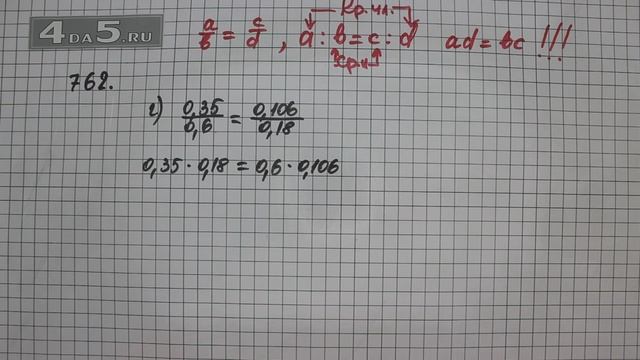 4DA5.RU
Кр. чл.
a/b = c/d , a : b = c : d ad = bc !!!
ср. ч.
762.
г) 0,35/0,6 = 0,106/0,18
0,35 · 0,18 = 0,6 · 0,106